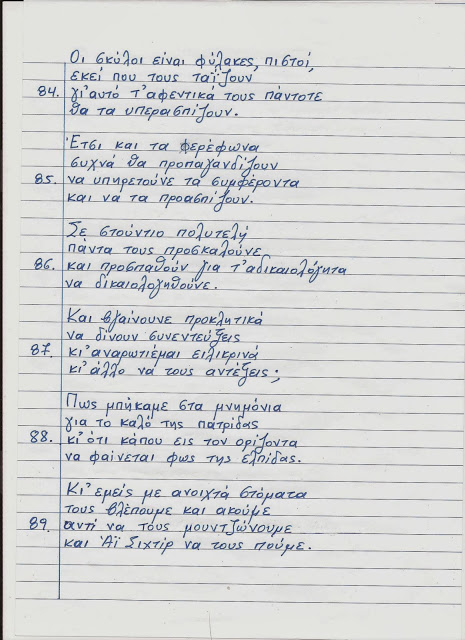 Οι σκύλοι είναι φύλακες, πιστοί,
εκεί που τους ταΐζουν
84. γι'αυτό τ'αφεντικά τους πάντοτε
θα τα υπερασπίζουν.
Έτσι και τα φερέφωνα
συχνά θα προπαγανδίζουν
85. να υπηρετούνε τα συμφέροντα
και να τα προασπίζουν.
Σε στούντιο πολυτελή
πάντα τους προσκαλούνε
86. και προσπαθούν για τ'αδικαιολόγητα
να δικαιολογηθούνε.
Και βγαίνουνε προκλητικά
να δίνουν συνεντεύξεις
87. κι'αναρωτιέμαι ειλικρινά
κι'άλλο να τους αντέξεις;
Πως μπήκαμε στα μνημόνια
για το καλό της πατρίδας
88. κι'ότι κάπου εις τον ορίζοντα
να φαίνεται φως της ελπίδας.
Κι'εμείς με ανοιχτά στόματα
τους βλέπουμε και ακούμε
89. αντί να τους μουντζώνουμε
και Άϊ Σιχτίρ να τους πούμε.